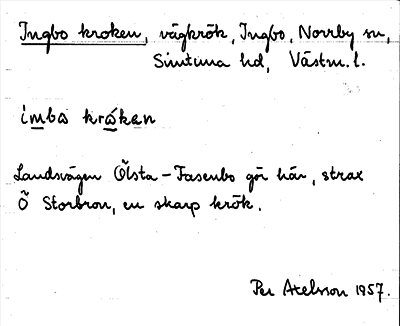 Ingbo kroken, vägkrök, Ingbo, Norrby sn,
Simtuna hd, Västm. l.
imba kråken
Landsvägen Östa - Fasenbo gör här, strax
Ö Storbron, en skarp krök.
Per Axelsson 1957.